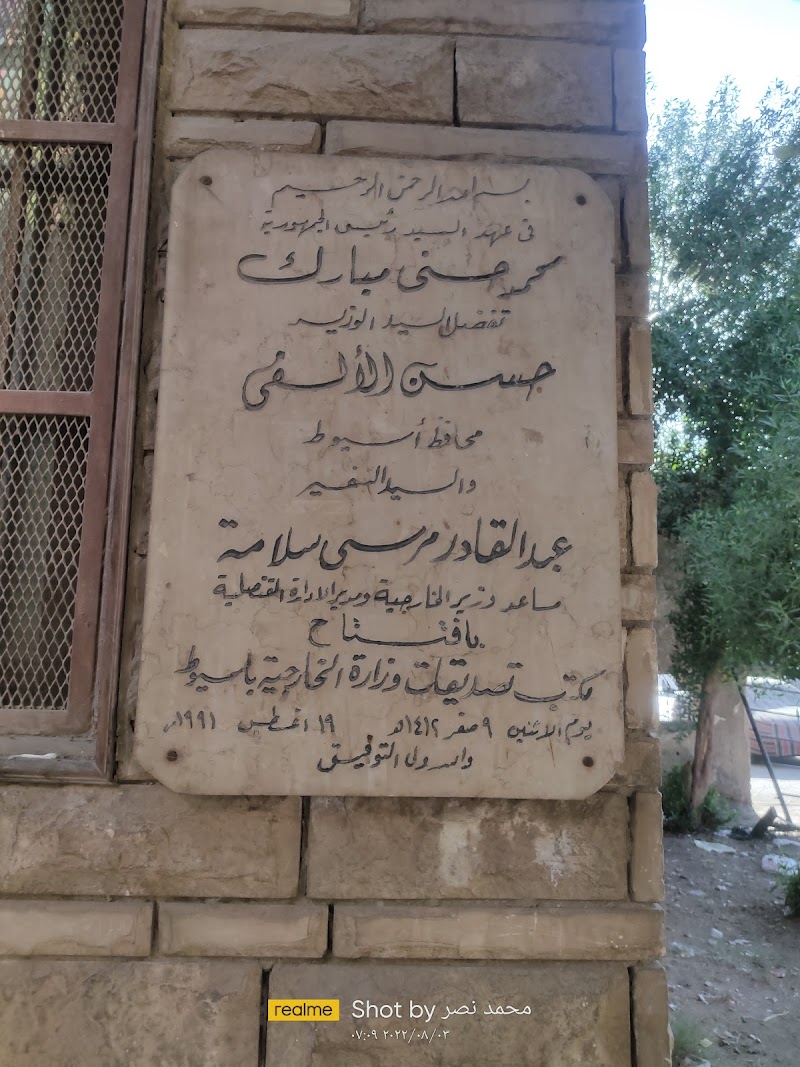 بسم الله الرحمن الرحيم
فى عهد السيد رئيس الجمهورية
محمد حسنى مبارك
تفضل السيد الوزير
حسن الألفى
محافظ أسيوط
والسيد السفير
عبد القادر مرسى سلامة
مساعد وزير الخارجية ومدير الادارة القنصلية
بافتتاح
مكتب تصديقات وزارة الخارجية بأسيوط
يوم الاثنين ٩ صفر ١٤١٢هـ ١٩ اغسطس ١٩٩١م
والله ولى التوفيق
realme Shot by محمد نصر
٢٠٢٢/٠٨/٠٣ ٠٧:٠٩